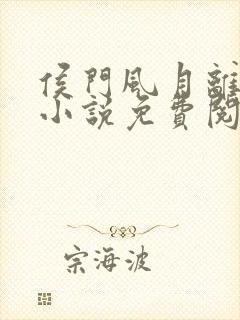 侯門風月離
小說免費閱
宗海波